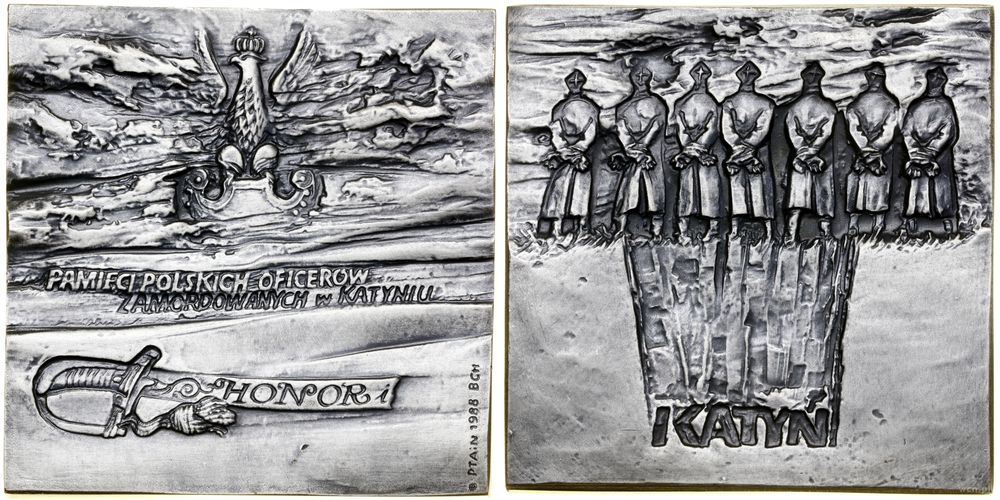 PAMIĘCI POLSKICH OFICERÓW
ZAMORDOWANYCH W KATYNIU
HONOR i
© PTAiN 1988 BCH
KATYŃ